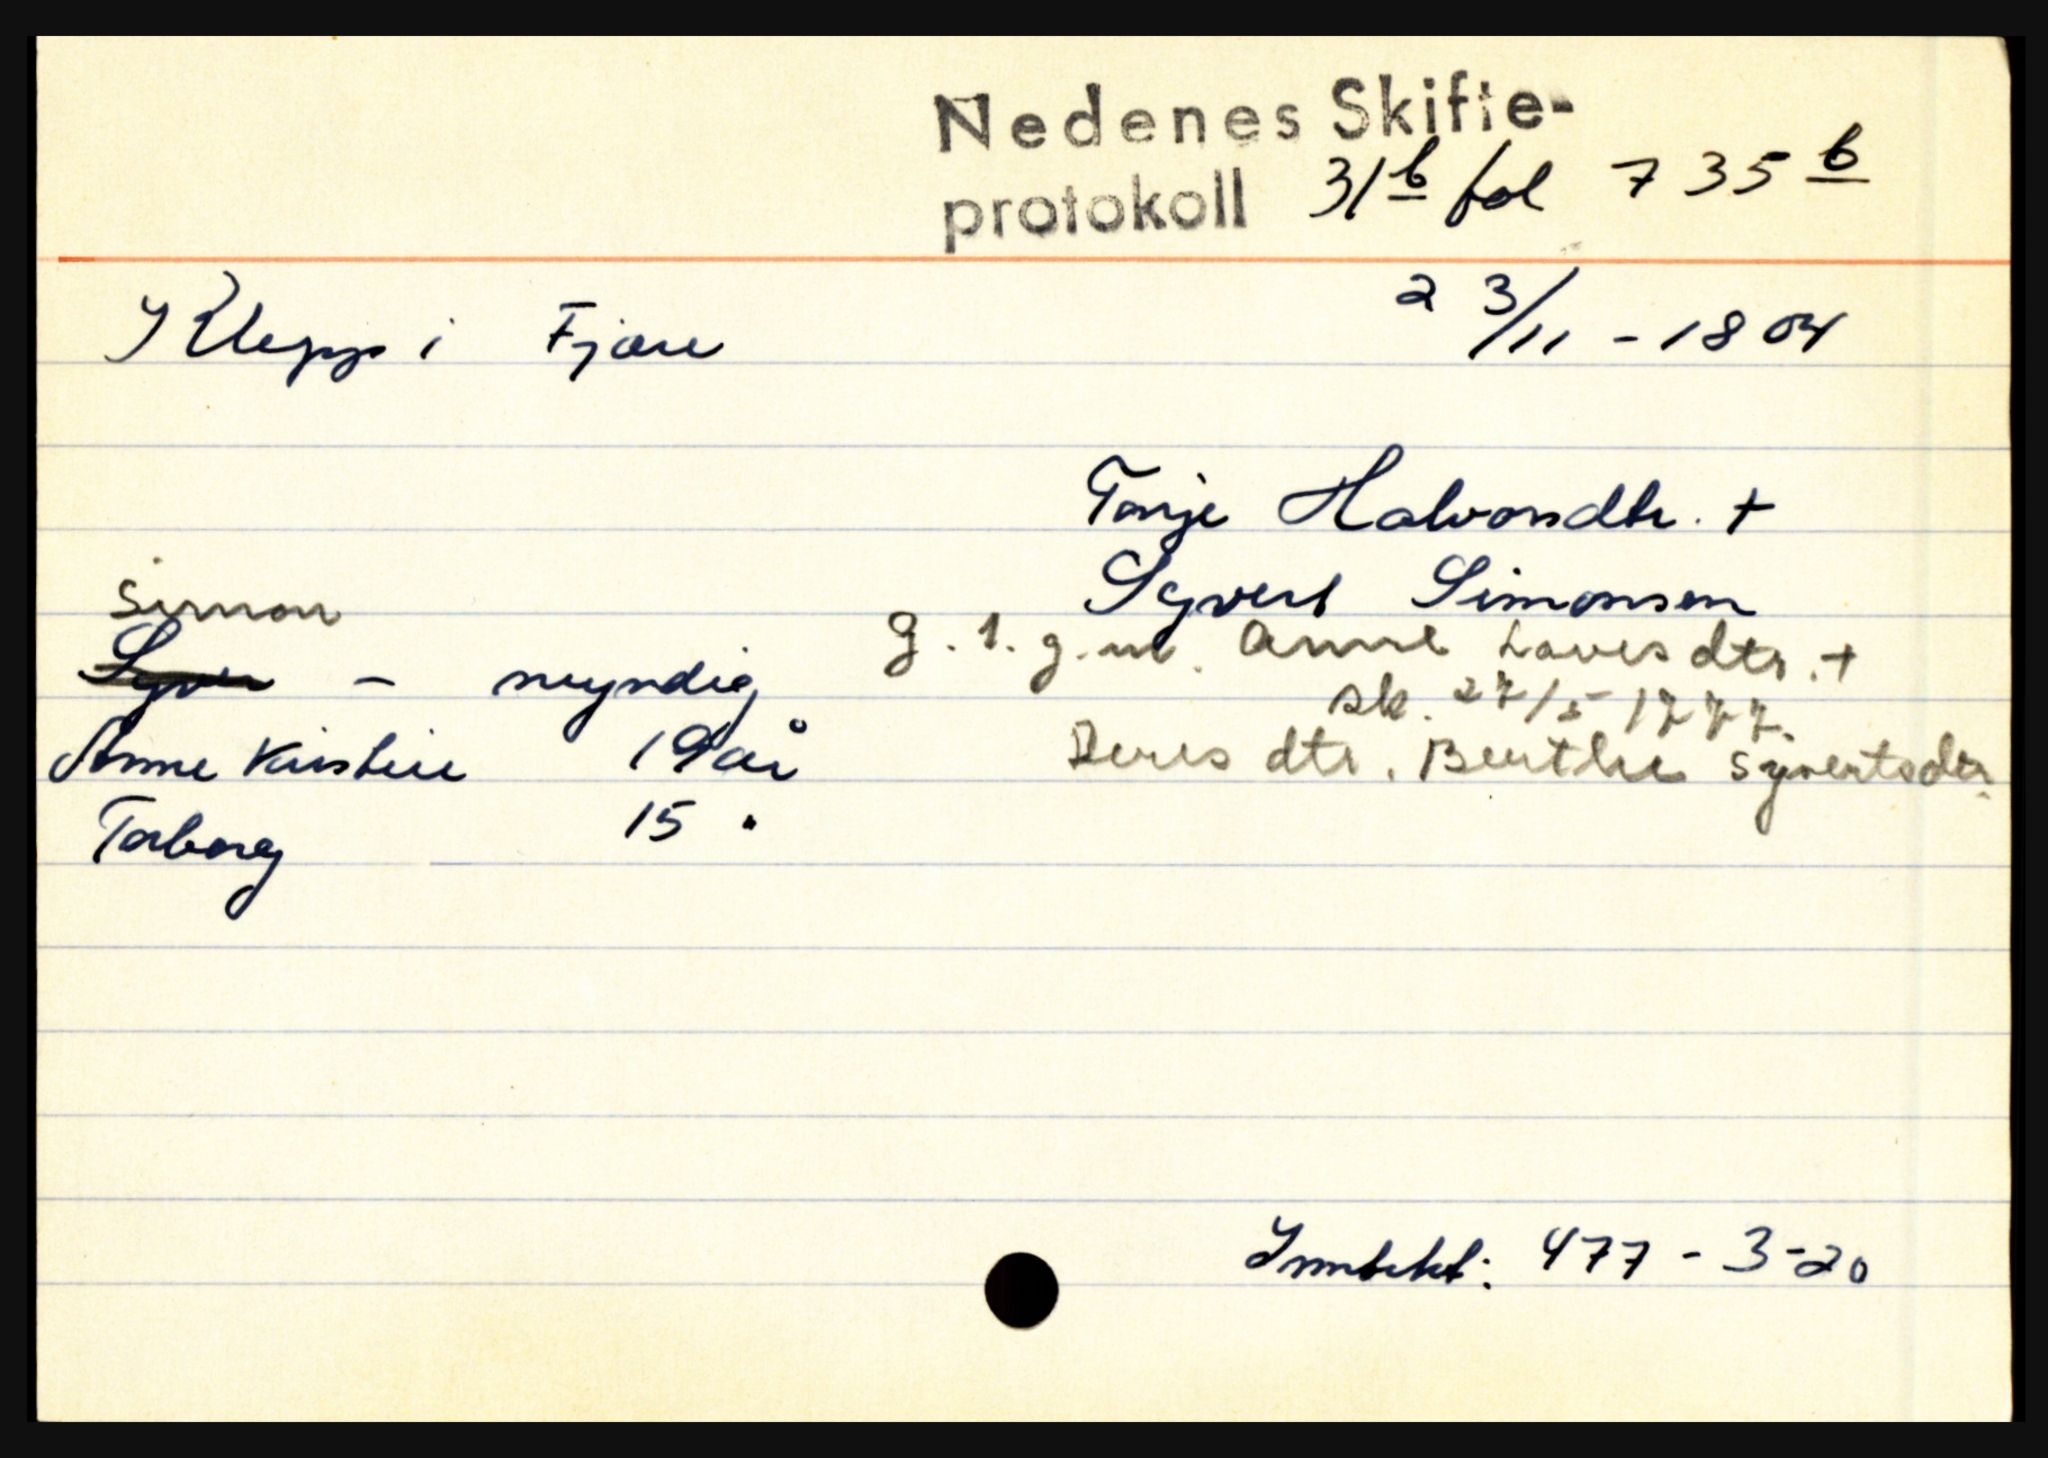 Nedenes Skifte-
protokoll 31b fol 735b
Klepp i Fjære 23/11 - 1804
Tonje Halvorsdtr. +
Syvert Simonsen
g. 1. g. m. Anne Lavesdtr. +
sk. 27/5 1777.
Deres dtr. Berthe Syvertsdtr.
Simon
Syver - myndig
Anne Kristine 19 år
Torborg 15 "
Inntekt: 477 - 3 - 20